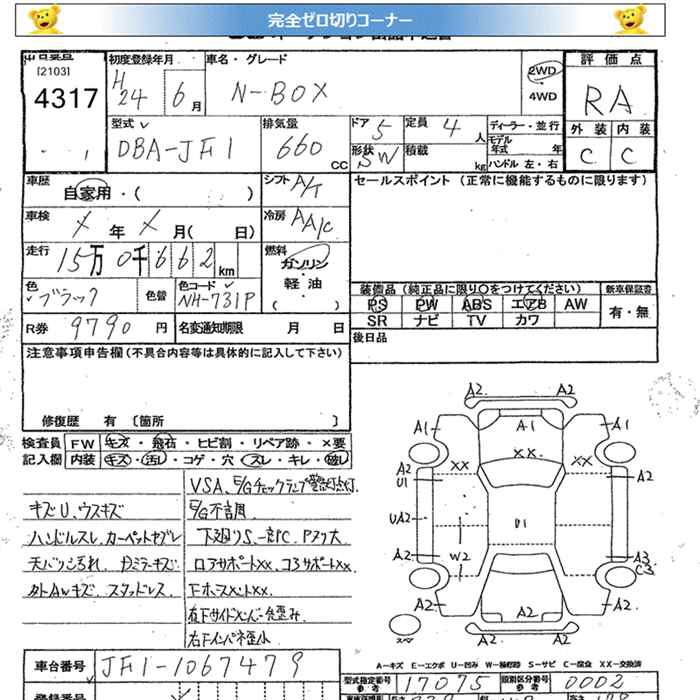 完全ゼロ切りコーナー
[2103]
4317
初度登録年月
H24 6月
車名・グレード
N-BOX
2WD
4WD
評価点
RA
外装 内装
C C
型式
DBA-JF1
排気量
660 CC
ドア 5
形状 SW
定員 4 人
積載 kg
ディーラー・並行
モデル年式 年
ハンドル 左・右
車歴
自家用・( )
シフト A/T
セールスポイント (正常に機能するものに限ります)
車検
X 年 X 月( 日)
冷房 AA/C
走行
15万0千662km
燃料
ガソリン
軽油
( )
色
ブラック
色替
色コード
NH-731P
装備品 (純正品に限り○をつけてください) 新車保証書
PS PW ABS エアB AW 有・無
SR ナビ TV カワ
R券 9790円
名変通知期限 月 日
後日品
注意事項申告欄(不具合内容等は具体的に記入して下さい)
修復歴 有 〔箇所 〕
検査員 FW キズ・飛石・ヒビ割・リペア跡・×要
記入欄 内装 キズ・汚し・コゲ・穴・スレ・キレ・破し
VSA、E/Gチェックランプ警告灯点灯
キズU、ウスキズ
E/G不調
ハンドルスレ、カーペットキズレ
下廻りS、一部C、Pヌリ大
天バリ汚れ、内ミラーキズ
ロアサポートxx、コアサポートxx
外Awキズ、スタッドレス
右下サイドメンバー先歪み
右下インパネ歪小
A2 A2
A1 A1 A1
XX XX XX
A2 U1 A2
UA2 U1
A2 W2 A3 C3
A2 A2
A2 A2
スペア
A−キズ E−エクボ U−凹み W−補修跡 S−サビ C−腐食 XX−交換済
車台番号 JF1-1067479
型式指定番号 参考 17075 類別区分番号 参考 0002
登録番号